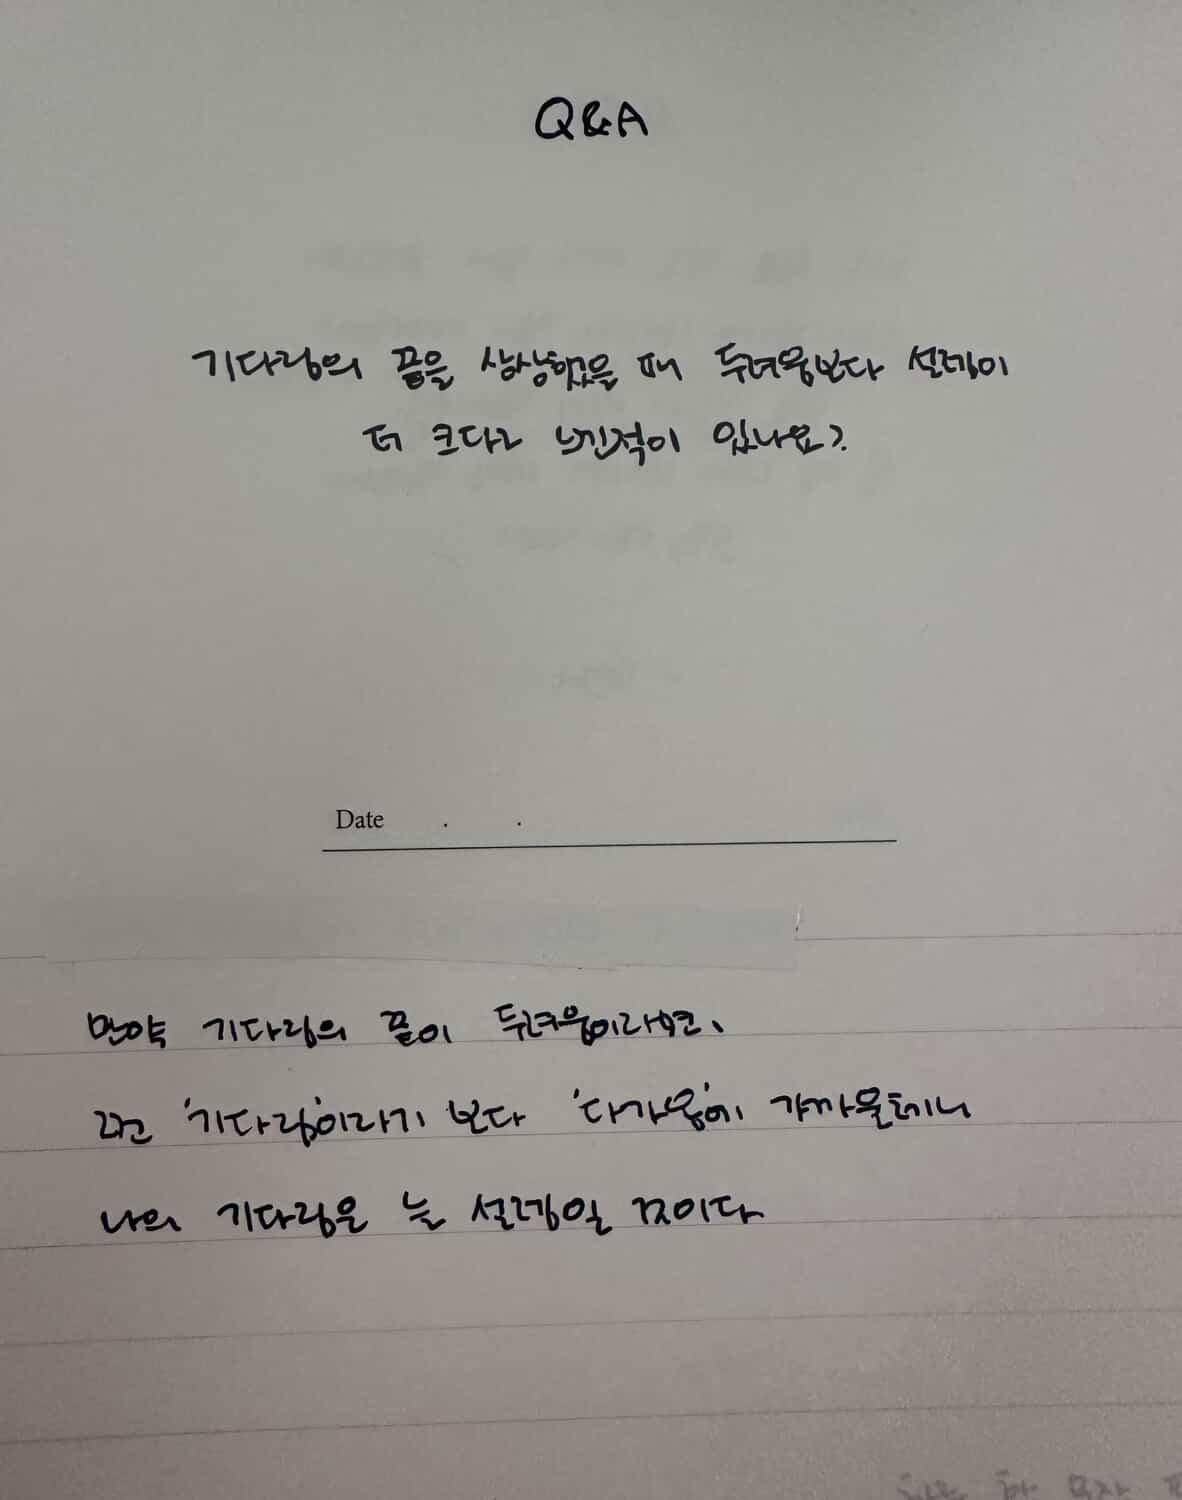 Q&A
기다림의 끝을 상상했을 때 두려움보다 설렘이
더 크다고 느낀적이 있나요?
Date . .
만약 기다림의 끝이 두려움이라면,
그건 '기다림'이라기 보다 '다가움'에 가까울테니
나의 기다림은 늘 설렘일 것이다